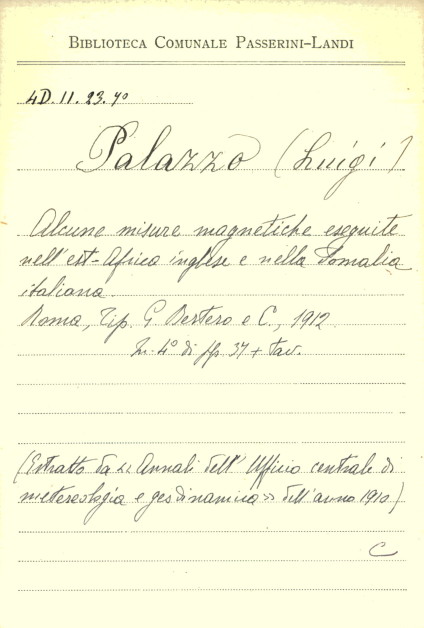 BIBLIOTECA COMUNALE PASSERINI-LANDI
4D. 11. 23. 40
Palazzo (Luigi)
Alcune misure magnetiche eseguite
nell'est-Africa inglese e nella Somalia
italiana.
Roma, Tip. G Bertero e C., 1912
In. 4° di pp 37 + tav.
(Estratto da «Annali dell'Ufficio centrale di
metereologia e geodinamica» dell'anno 1910)
C